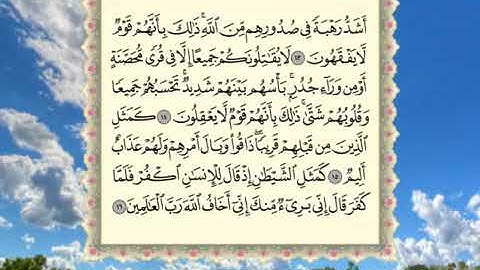 أَشَدُّ رَهْبَةً فِى صُدُورِهِم مِّنَ ٱللَّهِ ۚ ذَٰلِكَ بِأَنَّهُمْ قَوْمٌ
لَّا يَفْقَهُونَ ١٣ لَا يُقَـٰتِلُونَكُمْ جَمِيعًا إِلَّا فِى قُرًى مُّحَصَّنَةٍ
أَوْ مِن وَرَآءِ جُدُرٍۭ ۚ بَأْسُهُم بَيْنَهُمْ شَدِيدٌ ۚ تَحْسَبُهُمْ جَمِيعًا
وَقُلُوبُهُمْ شَتَّىٰ ۚ ذَٰلِكَ بِأَنَّهُمْ قَوْمٌ لَّا يَعْقِلُونَ ١٤ كَمَثَلِ
ٱلَّذِينَ مِن قَبْلِهِمْ قَرِيبًا ۖ ذَاقُوا۟ وَبَالَ أَمْرِهِمْ وَلَهُمْ عَذَابٌ
أَلِيمٌ ١٥ كَمَثَلِ ٱلشَّيْطَـٰنِ إِذْ قَالَ لِلْإِنسَـٰنِ ٱكْفُرْ فَلَمَّا
كَفَرَ قَالَ إِنِّى بَرِىٓءٌ مِّنكَ إِنِّىٓ أَخَافُ ٱللَّهَ رَبَّ ٱلْعَـٰلَمِينَ ١٦